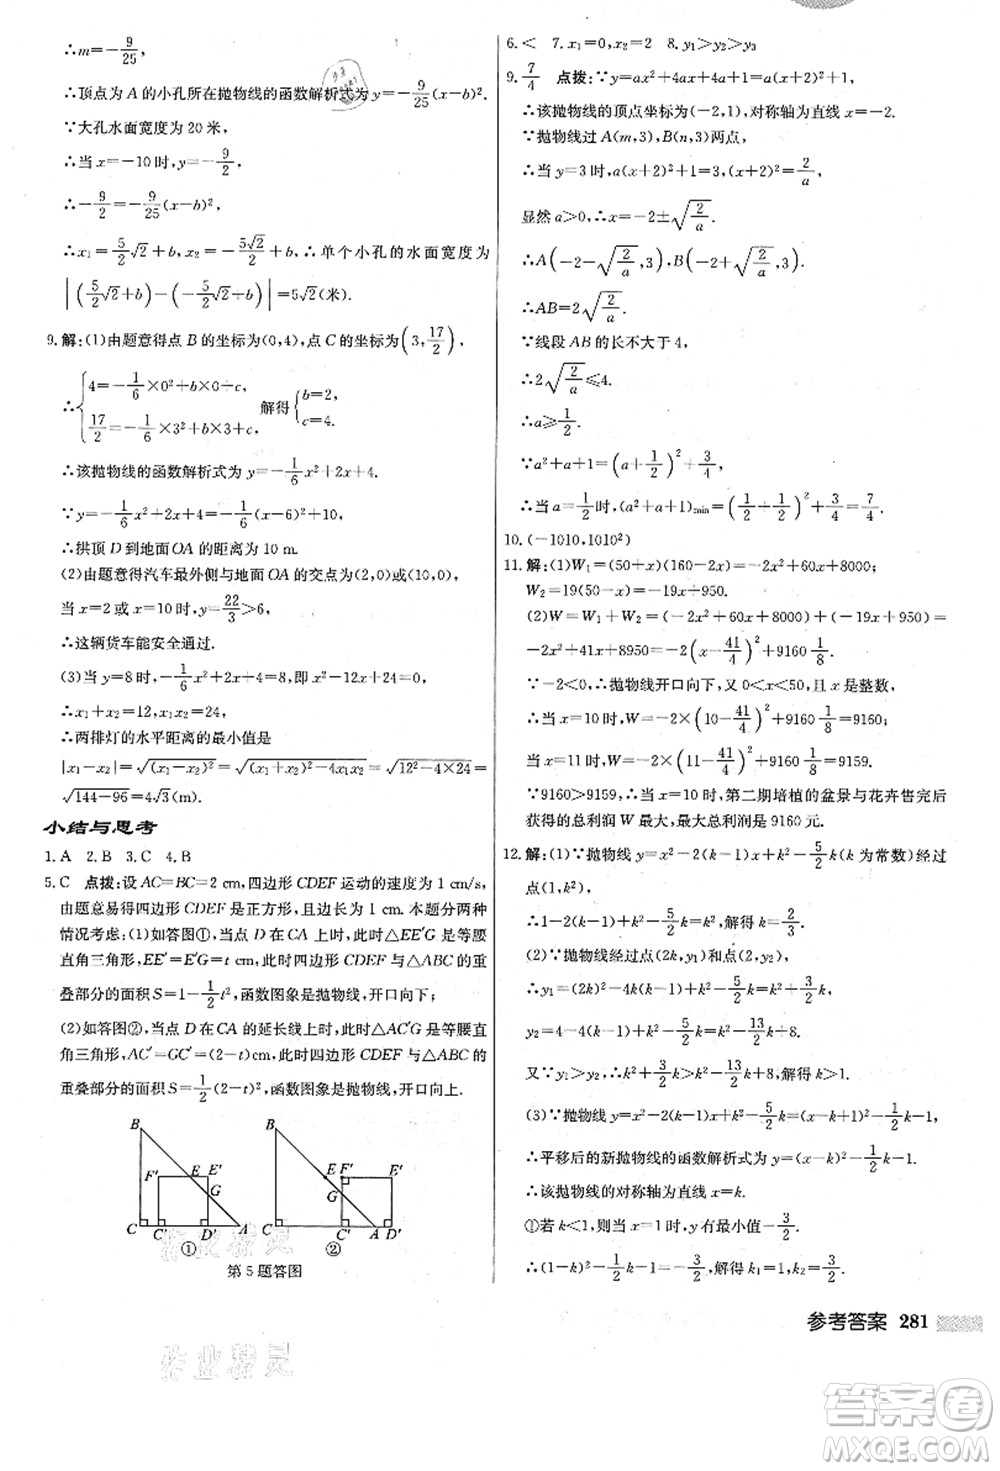 ∴m=-9/25,
∴顶点为 A 的小孔所在抛物线的函数解析式为 y=-9/25(x-b)².
∵大孔水面宽度为 20 米,
∴当 x=-10 时,y=-9/2,
∴-9/2=-9/25(x-b)²,
∴x₁=5/2√2+b,x₂=-5√2/2+b,∴单个小孔的水面宽度为
|(5/2√2+b)-(-5/2√2+b)|=5√2(米).
9.解:(1)由题意得点 B 的坐标为(0,4),点 C 的坐标为(3,17/2),
∴{4=-1/6×0²+b×0+c,
17/2=-1/6×3²+b×3+c, 解得{b=2,
c=4.
∴该抛物线的函数解析式为 y=-1/6x²+2x+4.
∵y=-1/6x²+2x+4=-1/6(x-6)²+10,
∴拱顶 D 到地面 OA 的距离为 10 m.
(2)由题意得汽车最外侧与地面 OA 的交点为(2,0)或(10,0),
当 x=2 或 x=10 时,y=22/3>6,
∴这辆货车能安全通过.
(3)当 y=8 时,-1/6x²+2x+4=8,即 x²-12x+24=0,
∴x₁+x₂=12,x₁x₂=24,
∴两排灯的水平距离的最小值是
|x₁-x₂|=√(x₁-x₂)²=√(x₁+x₂)²-4x₁x₂=√12²-4×24=
√144-96=4√3(m).
小结与思考
1.A 2.B 3.C 4.B
5.C 点拨:设 AC=BC=2 cm,四边形 CDEF 运动的速度为 1 cm/s,
由题意易得四边形 CDEF 是正方形,边长为 1 cm.本题分两种
情况考虑:(1)如答图①,当点 D 在 CA 上时,此时△EE′G 是等腰
直角三角形,EE′=E′G=t cm,此时四边形 CDEF 与△ABC 的重
叠部分的面积 S=1-1/2t²,函数图象是抛物线,开口向下;
(2)如答图②,当点 D 在 CA 的延长线上时,此时△AC′G 是等腰直
角三角形,AC′=GC′=(2-t)cm,此时四边形 CDEF 与△ABC 的
重叠部分的面积 S=1/2(2-t)²,函数图象是抛物线,开口向上.
B B
F′ E E′ E F′ E′
G G
C C′ D′ A C C′ A D′
① ②
第 5 题答图
6.< 7.x₁=0,x₂=2 8.y₁>y₂>y₃
9.7/4 点拨:∵y=ax²+4ax+4a+1=a(x+2)²+1,
∴该抛物线的顶点坐标为(-2,1),对称轴为直线 x=-2.
∵抛物线过 A(m,3),B(n,3)两点,
∴当 y=3 时,a(x+2)²+1=3,(x+2)²=2/a,
显然 a>0,∴x=-2±√2/a.
∴A(-2-√2/a,3),B(-2+√2/a,3),
∴AB=2√2/a.
∵线段 AB 的长不大于 4,
∴2√2/a≤4.
∴a≥1/2.
∵a²+a+1=(a+1/2)²+3/4,
∴当 a=1/2时,(a²+a+1)min=(1/2+1/2)²+3/4=7/4.
10.(-1010,1010²)
11.解:(1)W₁=(50+x)(160-2x)=-2x²+60x+8000;
W₂=19(50-x)=-19x+950.
(2)W=W₁+W₂=(-2x²+60x+8000)+(-19x+950)=
-2x²+41x+8950=-2(x-41/4)²+9160 1/8.
∵-2<0,∴抛物线开口向下,又 0<x<50,且 x 是整数,
∴当 x=10 时,W=-2×(10-41/4)²+9160 1/8=9160;
当 x=11 时,W=-2×(11-41/4)²+9160 1/8=9159.
∵9160>9159,∴当 x=10 时,第二期培植的盆景与花卉售完后
获得的总利润 W 最大,最大总利润是 9160 元.
12.解:(1)∵抛物线 y=x²-2(k-1)x+k²-5/2k(k 为常数)经过
点(1,k²),
∴1-2(k-1)+k²-5/2k=k²,解得 k=2/3.
(2)∵抛物线经过点(2k,y₁)和点(2,y₂),
∴y₁=(2k)²-4k(k-1)+k²-5/2k=k²+3/2k,
y₂=4-4(k-1)+k²-5/2k=k²-13/2k+8.
又∵y₁>y₂,∴k²+3/2k>k²-13/2k+8,解得 k>1.
(3)∵抛物线 y=x²-2(k-1)x+k²-5/2k=(x-k+1)²-1/2k-1,
∴平移后的新抛物线的函数解析式为 y=(x-k)²-1/2k-1,
∴该抛物线的对称轴为直线 x=k.
①若 k<1,则当 x=1 时,y 有最小值-3/2,
∴(1-k)²-1/2k-1=-3/2,解得 k₁=1,k₂=3/2,
参考答案 281
作业精灵
答案圈
MXQE.COM